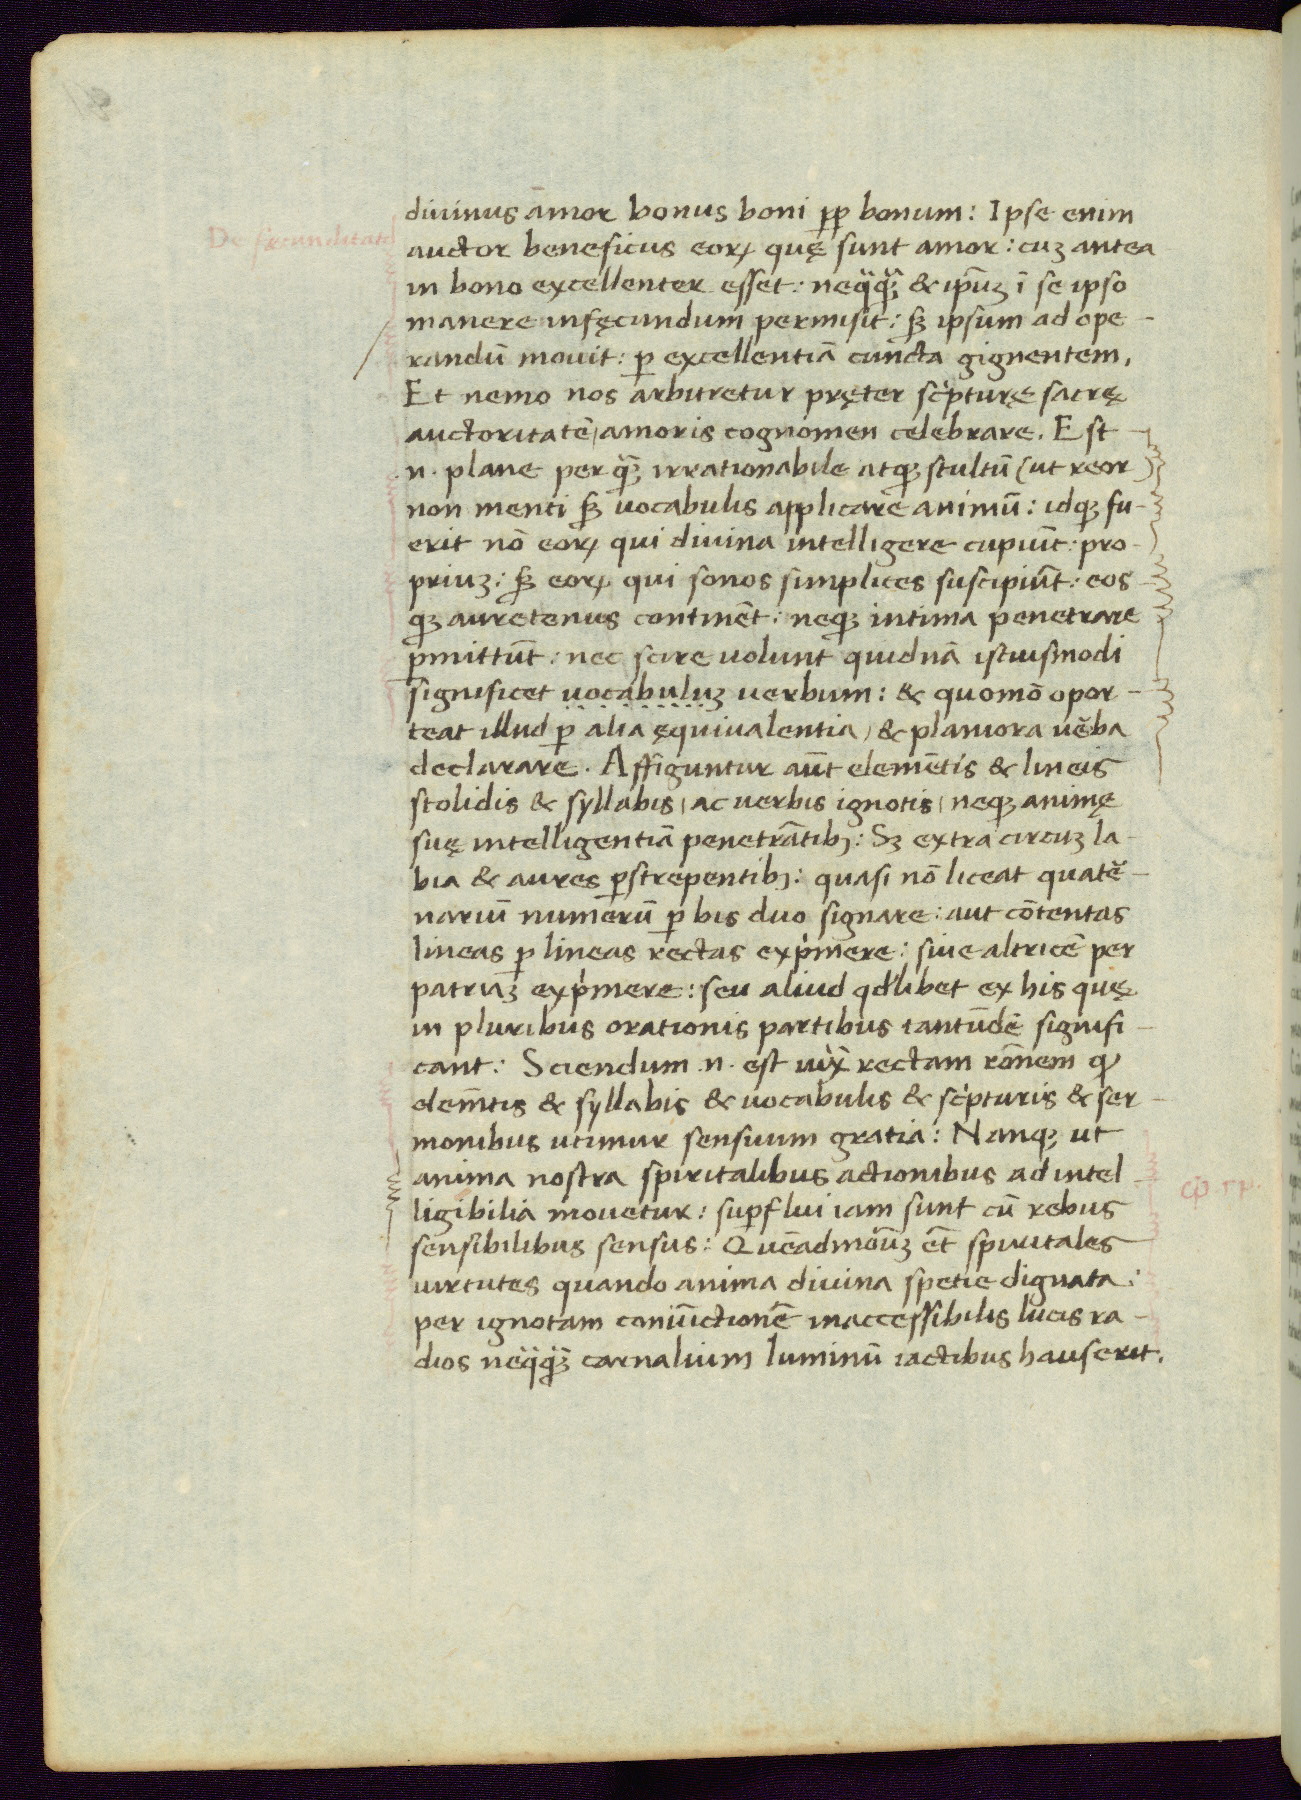 divinus amor bonus boni ꝓp bonum: Ipse enim
De fecunditate
auctor beneficus eoꝝ quę sunt amor: cuꝫ antea
in bono excellenter esset: neq̈q̈ꝫ & ip̄uꝫ ī se ipso
manere infęcundum permisit: sꝫ ipsum ad ope-
randū movit: ꝑ excellentiā cuncta gignentem.
Et nemo nos arbitretur pręter sc̓pturę sacrę
auctoritatē, amoris cognomen celebrare. Est
.n. plane per q̄ꝫ irrationabile atqꝫ stultū (ut reor)
non menti sꝫ vocabulis applicare animū: idqꝫ fu-
erit nō eoꝝ qui divina intelligere cupiūt: pro-
priuꝫ: sꝫ eoꝝ qui sonos simplices suscipiūt: eos
qꝫ auretenus continēt: neqꝫ intima penetrare
ꝑmittūt: nec scire volunt quidnā istiusmodi
significet vocabuluꝫ verbum: & quomō opor-
teat illud ꝑ alia ęquivalentia, & planiora vēba
declarare. Affiguntur aūt elemētis & lineis
stolidis & syllabis, ac verbis ignotis, neqꝫ animę
suę intelligentiā penetrātibꝫ: Sꝫ extra circuꝫ la-
bia & aures ꝑstrepentibꝫ: quasi nō liceat quatē-
nariū numerū ꝑ bis duo signare: aut cōtentas
lineas ꝑ lineas rectas exp̓mere: sive altricē per
patriaꝫ exp̓mere: seu aliud qd̓libet ex his quę
in pluribus orationis partibus tantūdē signifi-
cant: Sciendum .n. est iuxͣ rectam rōnem ꝙ
elem̄tis & syllabis & vocabulis & sc̓pturis & ser-
monibus utimur sensuum gratia: Nanqꝫ ut
anima nostra spiritalibus actionibus ad intel-
ligibilia movetur: suꝑflui iam sunt cū rebus
cꝙ. rp.
sensibilibus sensus: Quēadmōuꝫ et̄ spiritales
virtutes quando anima divina spetie dignata:
per ignotam coniūctionē inaccessibilis lucis ra-
dios neq̈q̈ꝫ carnalium luminū iactibus hauserit.